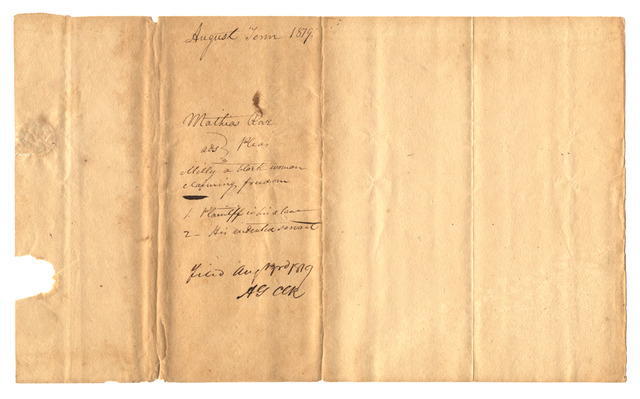 August Term 1819.
Mathias Rose
ads } Pleas
Milly a black woman
claiming freedom
1. Plaintiff is his slave
2 - His indented servant
Filed Aug 23rd 1819
AG Clk